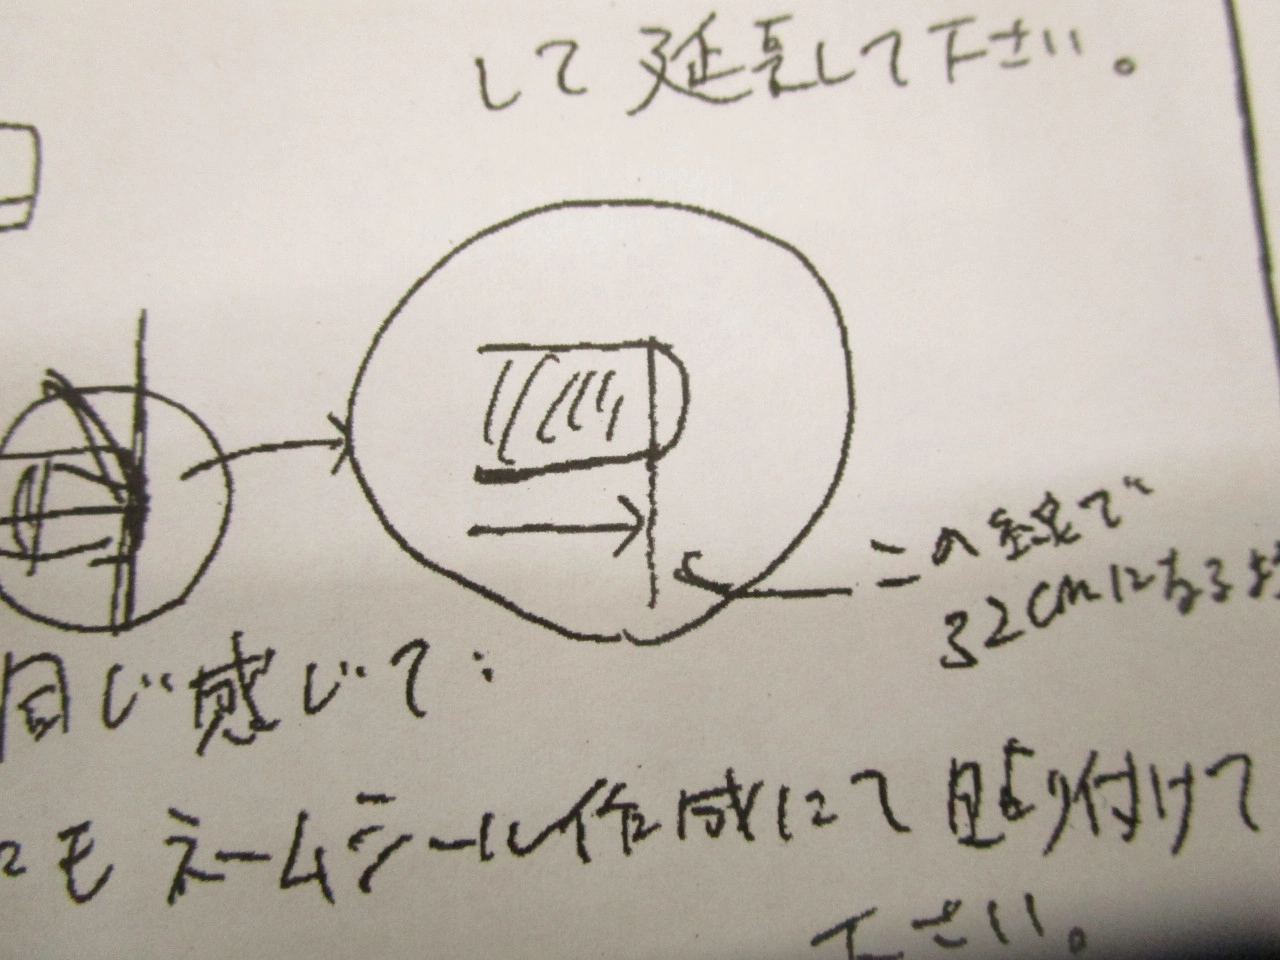 して延長して下さい。
この線で
32cmになるよ
同じ感じて:
もネームシール作成にて貼り付けて
下さい。